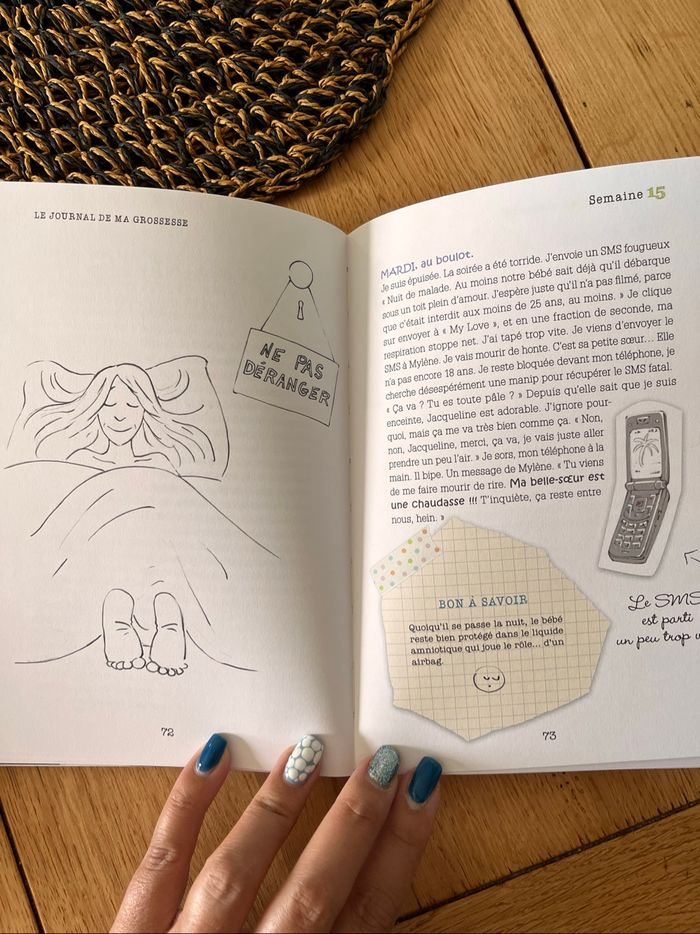 LE JOURNAL DE MA GROSSESSE
NE PAS
DÉRANGER
72
Semaine 15
MARDI, au boulot.
Je suis épuisée. La soirée a été torride. J'envoie un SMS fougueux
« Nuit de malade. Au moins notre bébé sait déjà qu'il débarque
sous un toit plein d'amour. J'espère juste qu'il n'a pas filmé, parce
que c'était interdit aux moins de 25 ans, au moins. » Je clique
sur envoyer à « My Love », et en une fraction de seconde, ma
respiration stoppe net. J'ai tapé trop vite. Je viens d'envoyer le
SMS à Mylène. Je vais mourir de honte. C'est sa petite sœur... Elle
n'a pas encore 18 ans. Je reste bloquée devant mon téléphone, je
cherche désespérément une manip pour récupérer le SMS fatal.
« Ça va ? Tu es toute pâle ? » Depuis qu'elle sait que je suis
enceinte, Jacqueline est adorable. J'ignore pour-
quoi, mais ça me va très bien comme ça. « Non,
non, Jacqueline, merci, ça va, je vais juste aller
prendre un peu l'air. » Je sors, mon téléphone à la
main. Il bipe. Un message de Mylène. « Tu viens
de me faire mourir de rire. Ma belle-sœur est
une chaudasse !!! T'inquiète, ça reste entre
nous, hein. »
Le SMS
est parti
un peu trop
BON À SAVOIR
Quoiqu'il se passe la nuit, le bébé
reste bien protégé dans le liquide
amniotique qui joue le rôle... d'un
airbag.
73